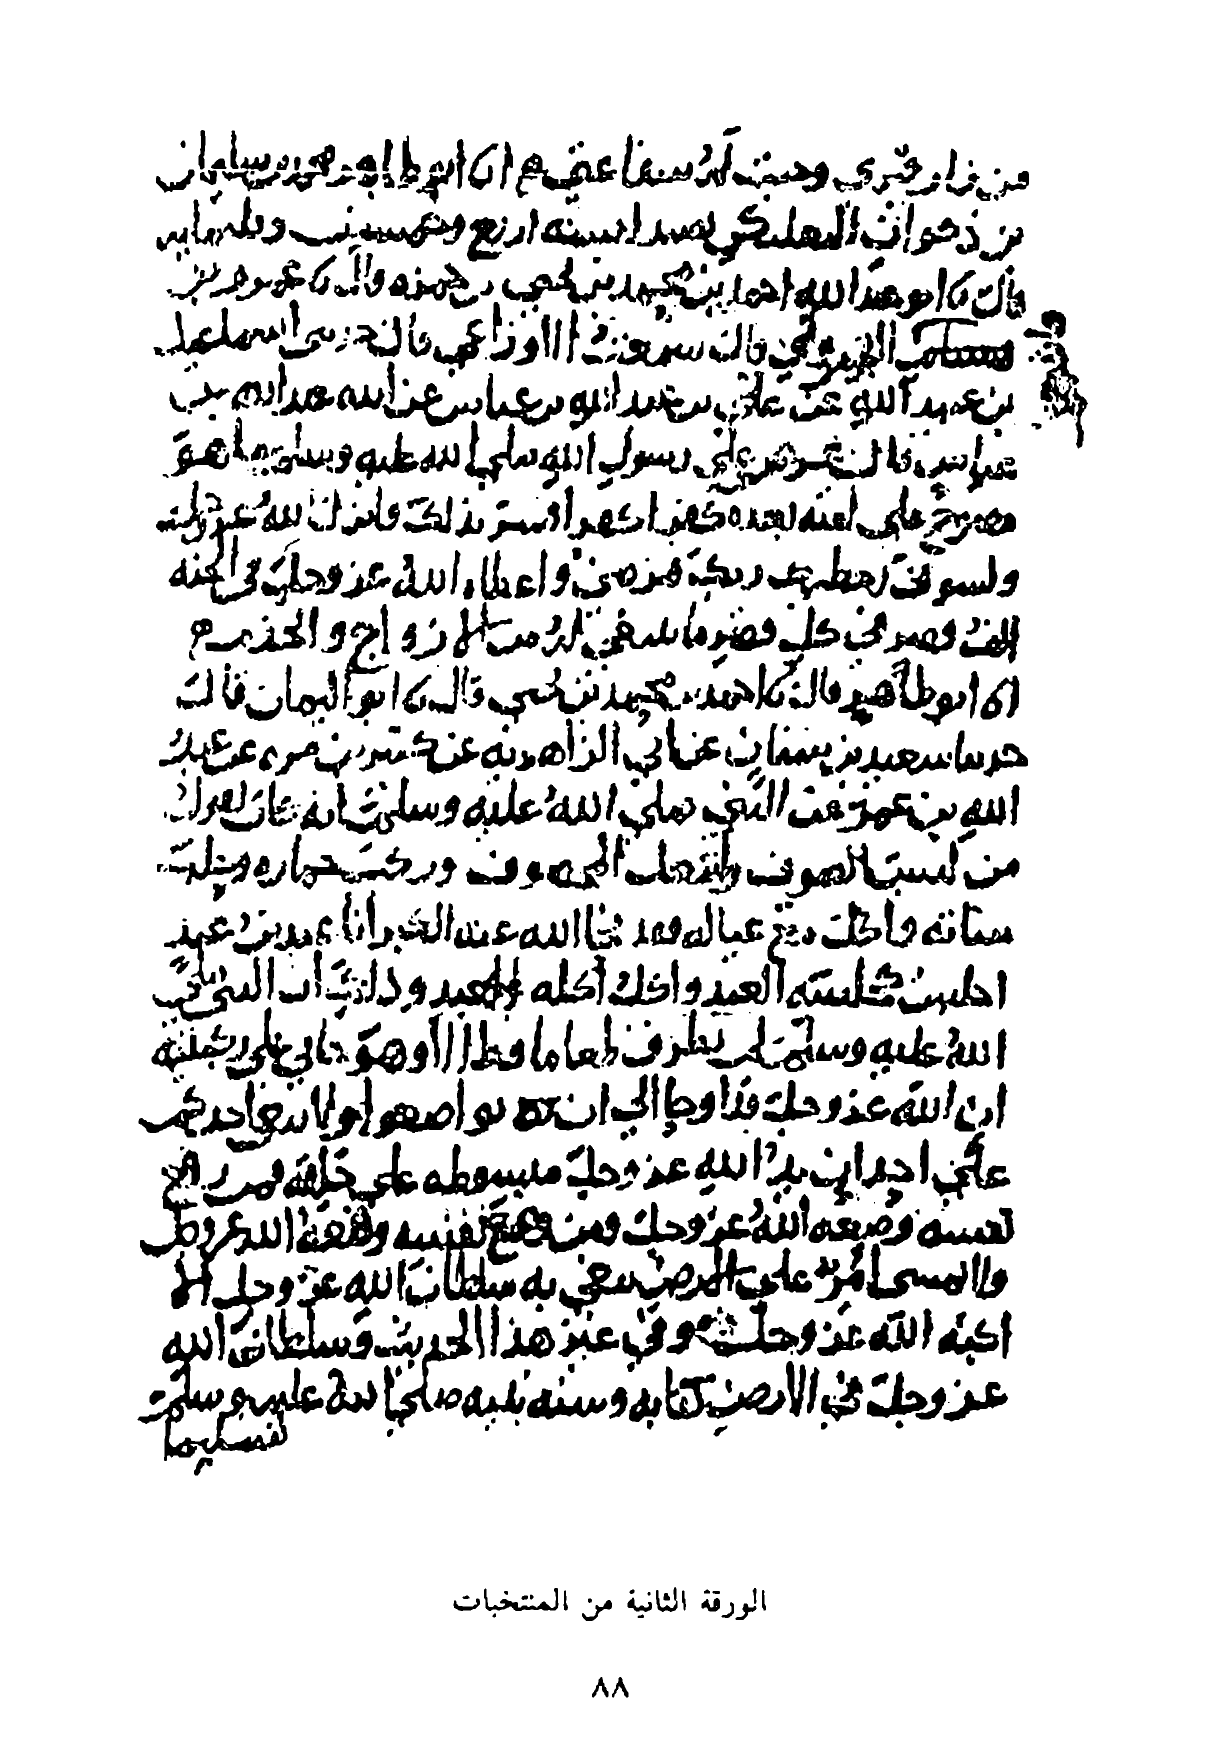 من زار قبري وجبت له شفاعتي انا ابو طاهر محمد بن سليمان
بن ذكوان البعلبكي بصيدا سنة اربع وخمسين وثلثمايه
قال نا ابو عبد الله احمد بن محمد بن يحيى بن حمزه قال نا عمرو بن
هاشم البيروتي قال سمعت الاوزاعي قال حدثني اسماعيل
بن عبيد الله عن علي بن عبد الله بن عباس عن ابيه عبد الله بن
عباس قال عرض على رسول الله صلى الله عليه وسلم ما هو
مفتوح على امته بعده كفرا كفرا فسر بذلك فانزل الله عز وجل
ولسوف يعطيك ربك فترضى واعطاه الله عز وجل في الجنه
الف قصر في كل قصر ما ينبغي له من الازواج والخدم
انا ابو طاهر قال نا احمد بن محمد بن يحيى قال نا ابو اليمان قال
حدثنا سعيد بن سنان عن ابي الزاهريه عن كثير بن مره عن عبد
الله بن عمر عن النبي صلى الله عليه وسلم انه كان يقول
من لبس الصوف وانتعل المخصوف وركب حماره وحلب
شاته واكل مع عياله فقد نحا الله عنه الكبر انا عبد بن عبد
اجلس جلسه العبد واكل اكله العبد وذلك ان النبي صلى
الله عليه وسلم لم يطرف طعاما قط الا وهو جاثي على ركبتيه
ان الله عز وجل قد اوحا الي ان تواضعوا ولا يبغي احدكم
على احد ان يد الله عز وجل مبسوطه على خلقه فمن رفع
نفسه وضعه الله عز وجل ومن وضع نفسه رفعه الله عز وجل
ولا يمسى امرؤ على الارض يبغي به سلطان الله عز وجل الا
اكبه الله عز وجل وفي غير هذا الحديث وسلطان الله
عز وجل في الارض كتابه وسنه نبيه صلى الله عليه وسلم
تسليما
الورقة الثانية من المنتخبات
٨٨